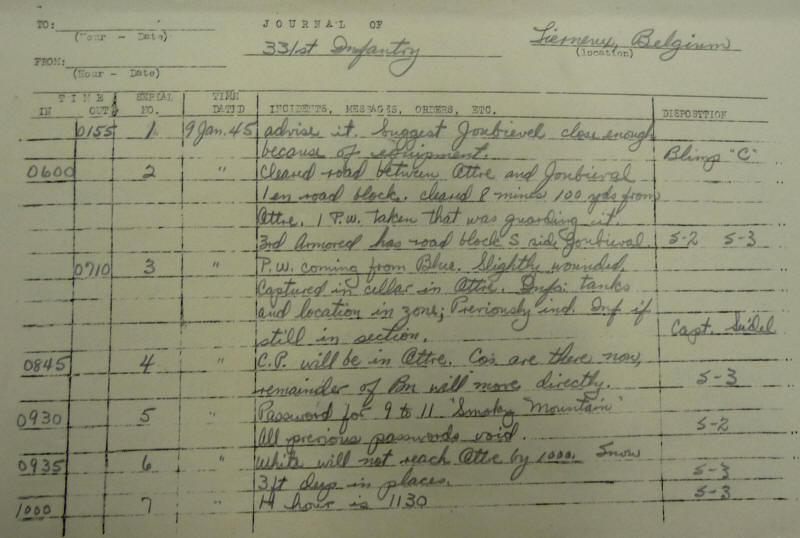 TO:
JOURNAL OF
(Hour - Date)
331st Infantry
Lierneux, Belgium
(location)
FROM:
(Hour - Date)
TIME SERIAL TIME
IN OUT NO. DATD INCIDENTS, MESSAGES, ORDERS, ETC. DISPOSITION
0155 1 9 Jan. 45 advise it. Suggest Joubievel close enough
because of equipment. Blimp "C"
0600 2 " Cleared road between Ottre and Joubieval
1 en road block. cleared 8 mines 100 yds from
Ottre. 1 P.W. taken that was guarding it.
3rd Armored has road block S side Joubieval. S-2 S-3
0710 3 " P.W. coming from Blue. Slightly wounded.
Captured in cellar in Ottre. Info: tanks
and location in zone; Previously ind. Inf if
still in section. Capt. Seidel
0845 4 " C.P. will be in Ottre. Cos. are there now,
remainder of Bn will move directly. S-3
0930 5 " Password for 9 to 11 "Smoky Mountain"
All previous passwords void. S-2
0935 6 " White will not reach Ottre by 1000. Snow
3 ft deep in places. S-3
1000 7 H hour is 1130 S-3